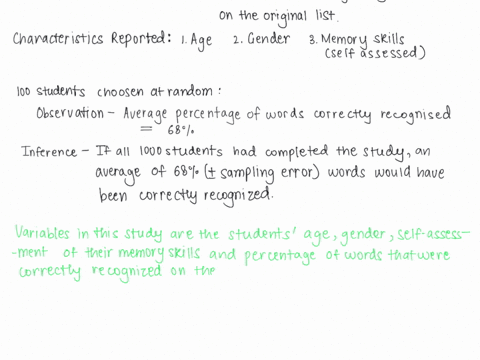 on the original list.
Characteristics Reported: 1. Age 2. Gender 3. Memory skills
(self assessed)
100 students choosen at random:
Observation - Average percentage of words correctly recognised
= 68%
Inference - If all 1000 students had completed the study, an
average of 68% (± sampling error) words would have
been correctly recognized.
Variables in this study are the students' age, gender, self-assess-
-ment of their memory skills and percentage of words that were
correctly recognized on the